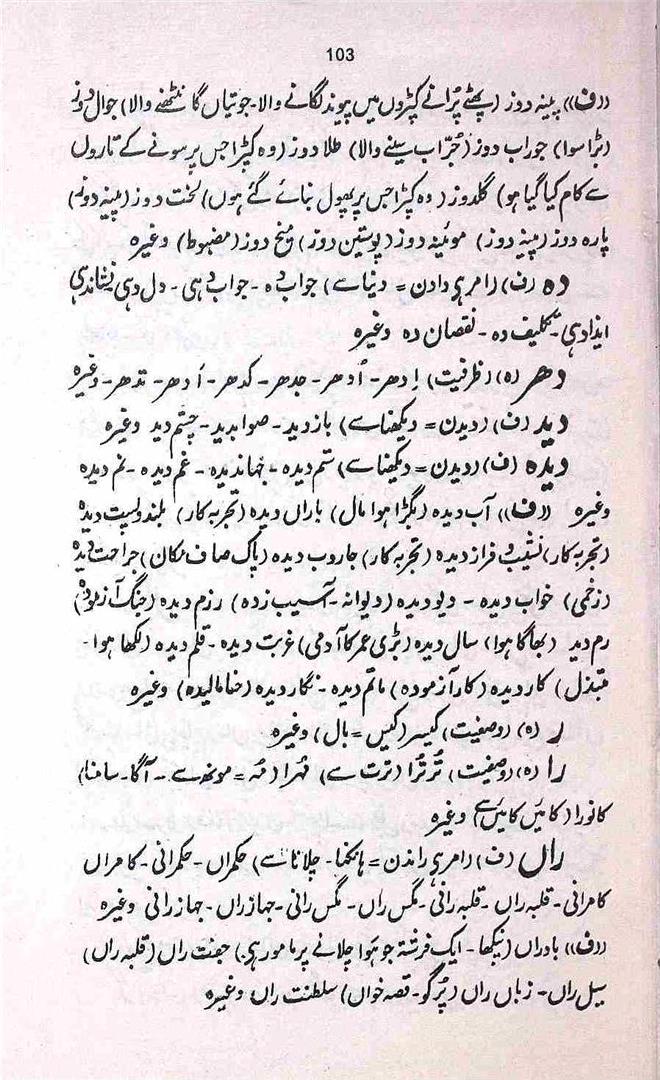 103
((ف)) پینہ دوز (پھٹے پُرانے کپڑوں میں پیوند لگانے والا۔ جوتیاں گانٹھنے والا) جوال دوز
(بڑا سوا) جوراب دوز (جُرّاب سینے والا) طلا دوز (وہ کپڑا جس پر سونے کے تاروں
سے کام کیا گیا ہو) گلدوز (وہ کپڑا جس پر پھول بنائے گئے ہوں) لخت دوز (پینہ دوز)
پارہ دوز (پینہ دوز) موئینہ دوز (پوستین دوز) میخ دوز (مضبوط) وغیرہ
دہ (ف) (امر از دادن = دینا سے) جواب دہ۔ جواب دہی۔ دل دہی نشاندہی
ایذا دہی۔ تکلیف دہ۔ نقصان دہ وغیرہ
دھر (ہ) (ظرفیت) اِدھر۔ اُدھر۔ جدھر۔ کدھر۔ اُدھر۔ تدھر۔ وغیرہ
دید (ف) (دیدن = دیکھنا سے) باز دید۔ صوابدید۔ چشم دید وغیرہ
دیدہ (ف) (دیدن = دیکھنا سے) ستم دیدہ۔ جہاندیدہ۔ غم دیدہ۔ نم دیدہ
وغیرہ ((ف)) آب دیدہ (بگڑا ہوا مال) باراں دیدہ (تجربہ کار) بلند و پست دیدہ
(تجربہ کار) نشیب و فراز دیدہ (تجربہ کار) جاروب دیدہ (پاک صاف مکان) جراحت دیدہ
(زخمی) خواب دیدہ۔ دیو دیدہ (دیوانہ۔ آسیب زدہ) رزم دیدہ (جنگ آزمودہ)
رم دید (بھاگا ہوا) سال دیدہ (بڑی عمر کا آدمی) غربت دیدہ۔ قلم دیدہ (لکھا ہوا۔
مبتذل) کار دیدہ (کار آزمودہ) ماتم دیدہ۔ نگار دیدہ (حنا مالیدہ) وغیرہ
ر (ہ) (وصفیت) کیسر (کیس = بال) وغیرہ
را (ہ) (وصفیت) تُرترا (ترت سے) مُہرا (مُہ = مونھ سے۔ آگا۔ سامنا)
کانورا (کائیں کائیں سے) وغیرہ
راں (ف) (امر از راندن = ہانکنا۔ چلانا سے) حکمراں۔ حکمرانی۔ کامراں
کامرانی۔ قلبہ راں۔ قلبہ رانی۔ مگس راں۔ مگس رانی۔ جہاز راں۔ جہاز رانی وغیرہ
((ف)) باد راں (پنکھا۔ ایک فرشتہ جو ہوا چلانے پر مامور ہی) جفت راں (قلبہ راں)
سیل راں۔ زباں راں (پُرگو۔ قصہ خواں) سلطنت راں وغیرہ